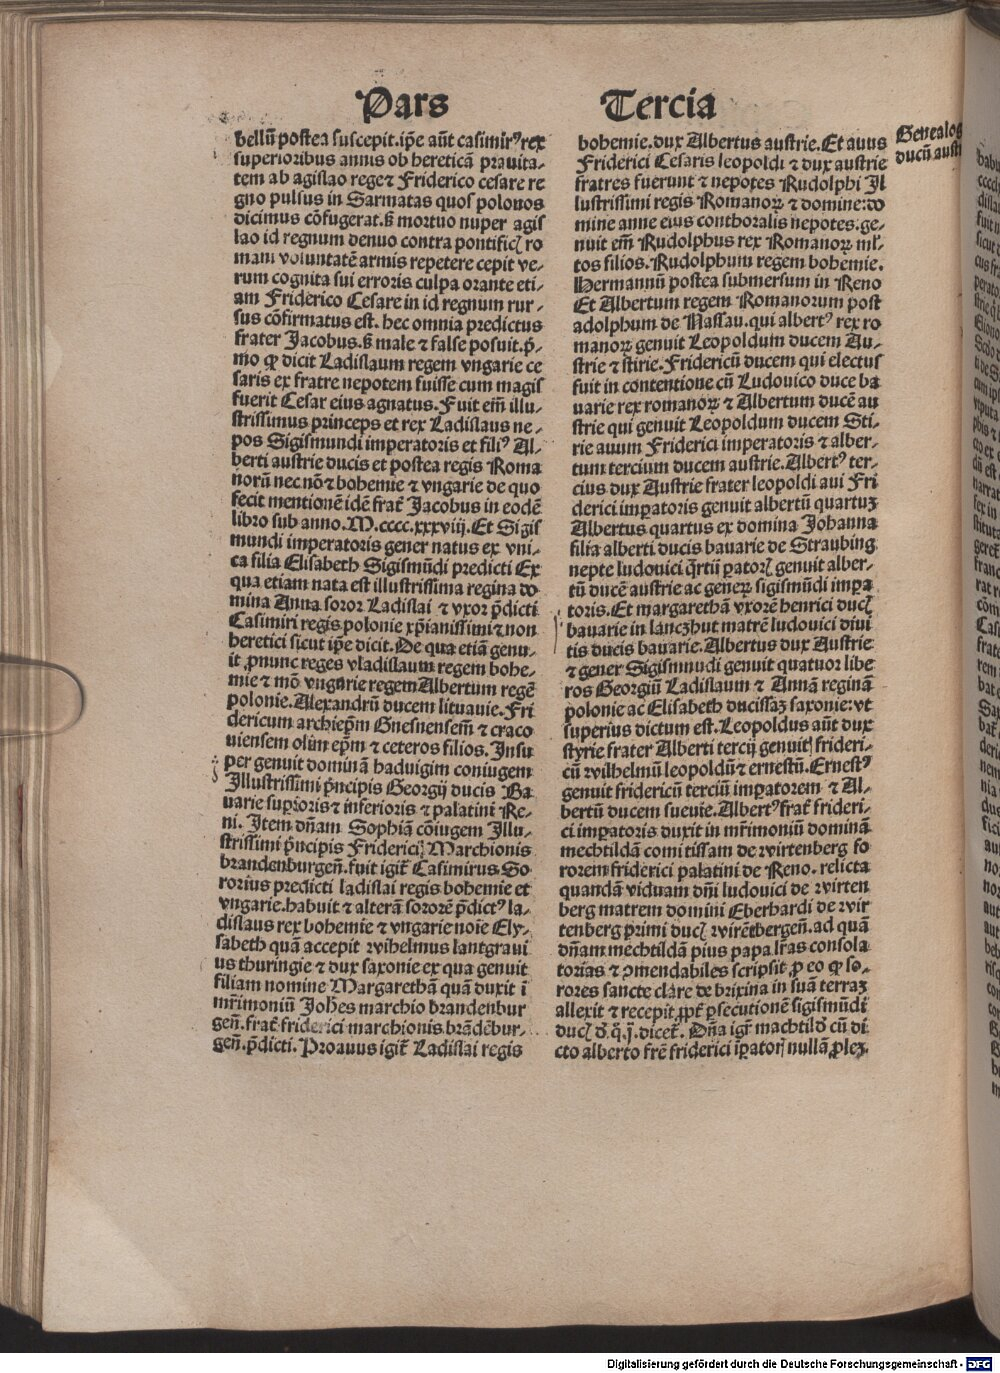 Pars
bellū postea suscepit. ip̄e aūt casimirꝰ rex
superioribus annis ob hereticā prauita-
tem ab agislao rege ⁊ Friderico cesare re
gno pulsus in Sarmatas quos polonos
dicimus cōfugerat. sꝫ mortuo nuper agis
lao id regnum denuo contra pontificꝭ ro
mani voluntatē armis repetere cepit ve-
rum cognita sui erroris culpa orante eti-
am Friderico Cesare in id regnum rur-
sus cōfirmatus est. hec omnia predictus
frater Jacobus. sꝫ male ⁊ false posuit. p̄-
mo ꝙ dicit Ladislaum regem vngarie ce
saris ex fratre nepotem fuisse cum magis
fuerit Cesar eius agnatus. Fuit em̄ illu-
strissimus princeps et rex Ladislaus ne-
pos Sigismundi imperatoris et filiꝰ Al-
berti austrie ducis et postea regis Roma
norū nec nō ⁊ bohemie ⁊ vngarie de quo
fecit mentionē idē frat̄ Jacobus in eodē
libro sub anno. M. cccc. xxxviij. Et Sigis
mundi imperatoris gener natus ex vni-
ca filia Elisabeth Sigismūdi predicti Ex
qua etiam nata est illustrissima regina do
mina Anna soror Ladislai ⁊ vxor p̄dicti
Casimiri regis polonie xp̄ianissimi ⁊ non
heretici sicut ip̄e dicit. De qua etiā genu-
it ꝓnunc reges vladislaum regem bohe-
mie ⁊ mō vngarie regem Albertum regē
polonie. Alexandrū ducem lituauie. Fri
dericum archiep̄m Gnesnensem̄ ⁊ craco
uiensem olim ep̄m ⁊ ceteros filios. Insu
per genuit dominā haduigim coniugem
Illustrissimi p̄ncipis Georgij ducis Ba
uarie sup̱ioris ⁊ inferioris ⁊ palatini Re-
ni. Item dn̄am Sophiā cōiugem Illu-
strissimi p̄ncipis Friderici Marchionis
brandenburgen̄. fuit igit̄ Casimirus So
rorius predicti ladislai regis bohemie et
vngarie. habuit ⁊ alterā sororē p̄dictꝰ la-
dislaus rex bohemie ⁊ vngarie noīe Ely-
sabeth quā accepit wilhelmus lantgraui
us thuringie ⁊ dux saxonie ex qua genuit
filiam nomine Margarethā quā duxit ī
mr̄imoniū Joh̄es marchio brandenbur
gen̄. frat̄ friderici marchionis brādēbur-
gen̄. p̄dicti. Proauus igit̄ Ladislai regis
Tercia
bohemie. dux Albertus austrie. Et auus
Friderici Cesaris leopoldi ⁊ dux austrie
fratres fuerunt ⁊ nepotes Rudolphi Il
lustrissimi regis Romanoꝝ ⁊ domine: do
mine anne eius conthoralis nepotes. ge-
nuit em̄ Rudolphus rex Romanoꝝ ml̄-
tos filios. Rudolphum regem bohemie.
Hermannū postea submersum in Reno
Et Albertum regem Romanorum post
adolphum de Nassau. qui albertꝰ rex ro
manoꝝ genuit Leopoldum ducem Au-
strie ⁊ stirie. Fridericū ducem qui electus
fuit in contentione cū Ludouico duce ba
uarie rex romanoꝝ ⁊ Albertum ducē au
strie qui genuit Leopoldum ducem Sti-
rie auum Friderici imperatoris ⁊ alber-
tum tercium ducem austrie. Albertꝰ ter-
cius dux Austrie frater leopoldi aui Fri
derici imꝑatoris genuit albertū quartuꝫ
Albertus quartus ex domina Johanna
filia alberti ducis bauarie de Straubing
nepte ludouici q̄rti īꝑatorꝭ genuit alber-
tū ducē austrie ac generꝝ sigismūdi imꝑa
toris. Et margarethā vxorē henrici ducꝭ
bauarie in lanczhut matrē ludouici diui
tis ducis bauarie. Albertus dux Austrie
⁊ gener Sigismundi genuit quatuor libe
ros Georgiū Ladislaum ⁊ Annā reginā
polonie ac Elisabeth ducissaꝫ saxonie: vt
superius dictum est. Leopoldus aūt dux
styrie frater Alberti tercij genuit frideri-
cū wilhelmū leopoldū ⁊ ernestū. Ernestꝰ
genuit fridericū terciū imꝑatorem ⁊ Al-
bertū ducem sueuie. Albertꝰ frat̄ frideri-
ci imꝑatoris duxit in mr̄imoniū dominā
mechtildā comitissam de wirtenberg so
rorem friderici palatini de Reno. relicta
quandā viduam dn̄i ludouici de wirten
berg matrem domini Eberhardi de wir
tenberg primi ducꝭ wirētbergen̄. ad quā
dn̄am mechtildā pius papa lr̄as consola
torias ⁊ ꝯmendabiles scripsit ꝓ eo ꝙ so-
rores sancte clare de brixina in suā terraꝫ
allexit ⁊ recepit ꝓpt̄ ꝑsecutionē sigismūdi
ducꝭ d̄. q̄. j̄. dicet̄. Dn̄a igr̄ machtild̄ cū di
cto alberto fr̄e friderici īꝑatorꝭ nullā ꝓleꝫ
Genealog
ducū aust
Digitalisierung gefördert durch die Deutsche Forschungsgemeinschaft - DFG